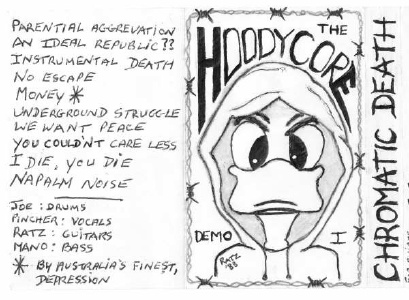 PARENTIAL AGGREVATION
AN IDEAL REPUBLIC??
INSTRUMENTAL DEATH
NO ESCAPE
MONEY *
UNDERGROUND STRUGGLE
WE WANT PEACE
YOU COULDN'T CARE LESS
I DIE, YOU DIE
NAPALM NOISE
JOE: DRUMS
PINCHER: VOCALS
RATZ: GUITARS
MANO: BASS
* BY AUSTRALIA'S FINEST,
DEPRESSION
THE
HOODYCORE
DEMO I
RATZ '88
CHROMATIC DEATH